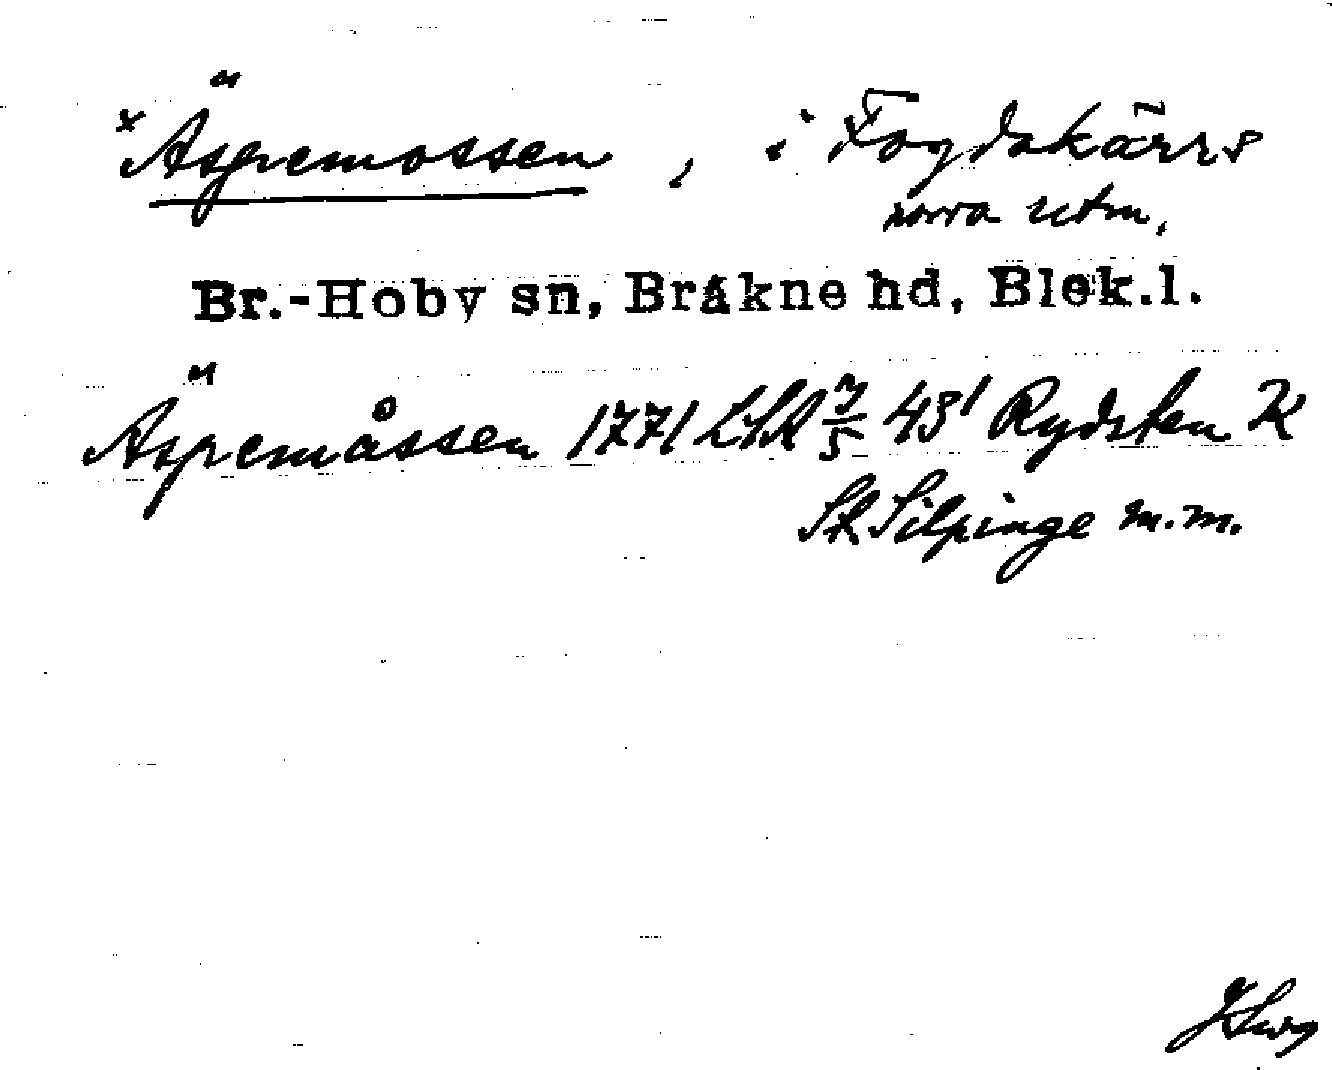 ˣÄspemossen, i Fogdakärrs
norra utm.
Br.-Hoby sn, Bräkne hd, Blek.l.
Äspemåssen 1771 LSK 7/5 43¹ Rydsten K
St Silpinge m.m.